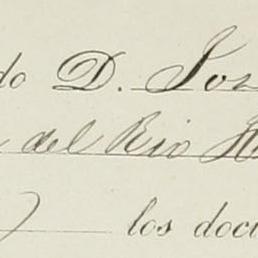 do D. Jos
del Rio H
los docu